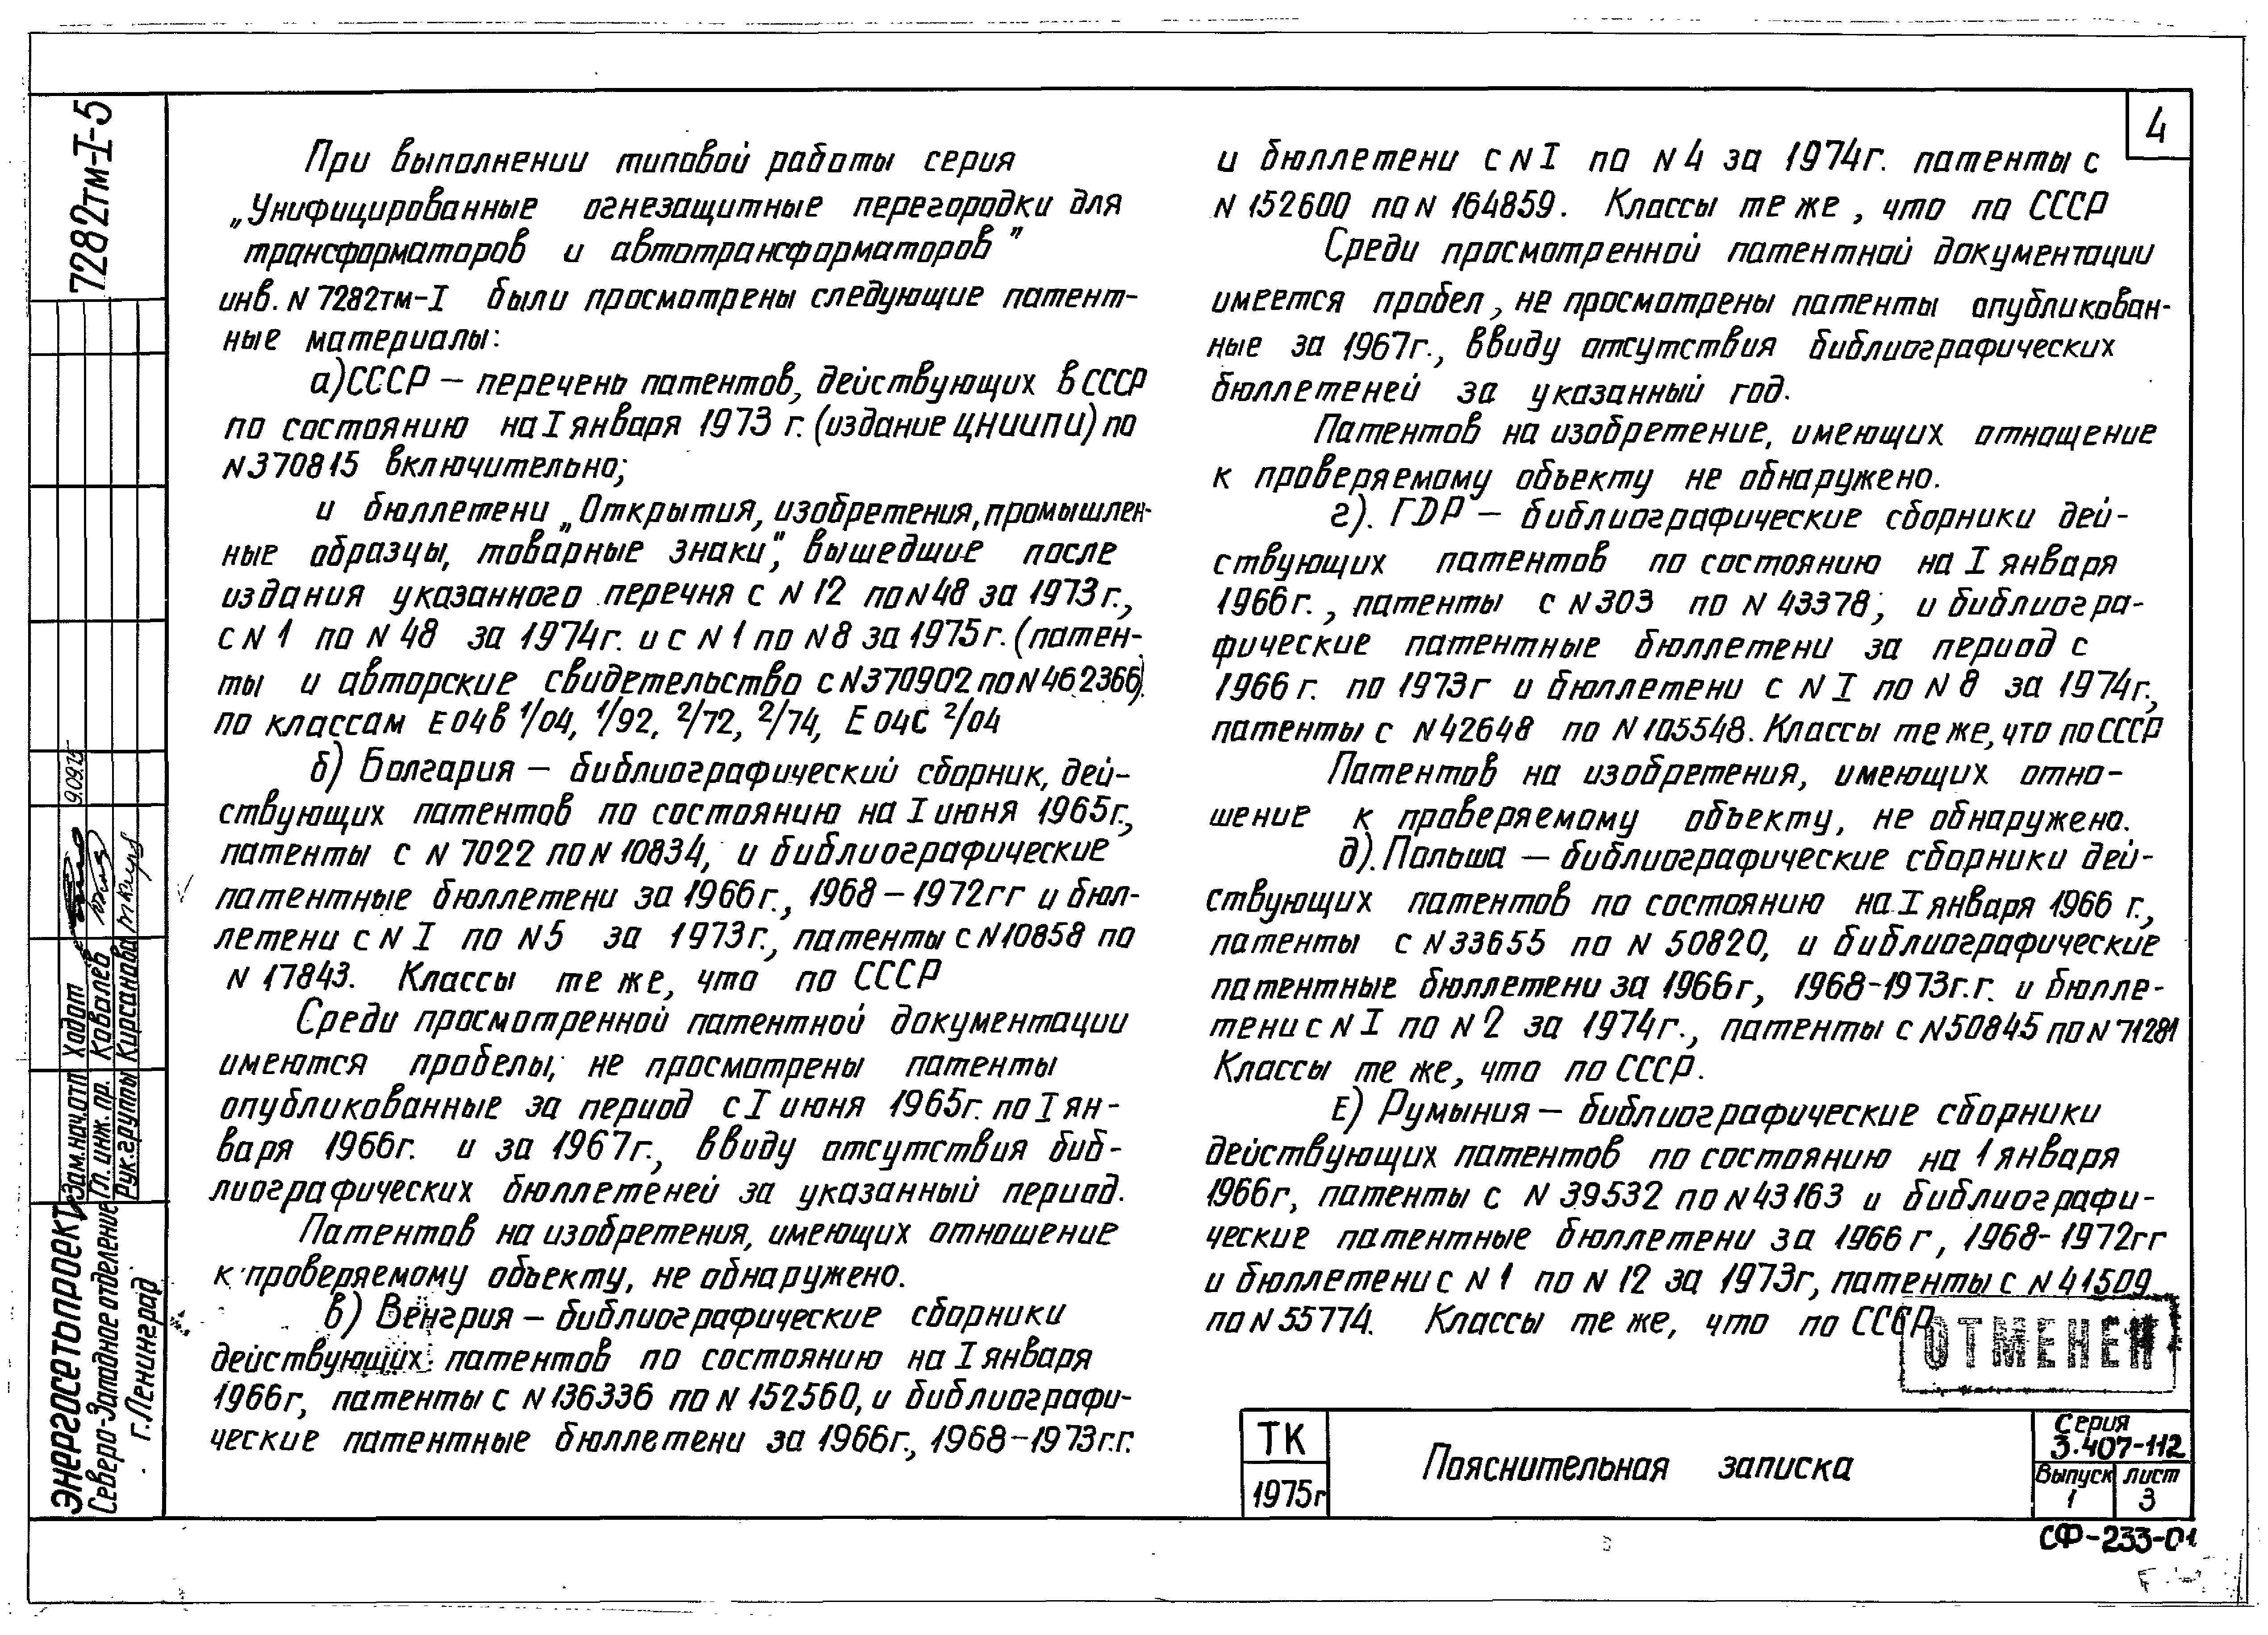 4
7282тм-I-5
При выполнении типовой работы серия
„Унифицированные огнезащитные перегородки для
трансформаторов и автотрансформаторов"
инв. N 7282тм-I были просмотрены следующие патент-
ные материалы:
а) СССР — перечень патентов, действующих в СССР
по состоянию на I января 1973 г. (издание ЦНИИПИ) по
N370815 включительно;
и бюллетени „Открытия, изобретения, промышлен-
ные образцы, товарные знаки", вышедшие после
издания указанного перечня с N 12 по N 48 за 1973 г.,
с N 1 по N 48 за 1974г. и с N 1 по N 8 за 1975 г. (патен-
ты и авторские свидетельство с N370902 по N462366).
по классам Е 04В 1/04, 1/92, 2/72, 2/74, Е 04С 2/04
б) Болгария — библиографический сборник, дей-
ствующих патентов по состоянию на I июня 1965г.,
патенты с N 7022 по N 10834, и библиографические
патентные бюллетени за 1966г., 1968 – 1972гг и бюл-
летени с N I по N5 за 1973г., патенты с N10858 по
N 17843. Классы те же, что по СССР
Среди просмотренной патентной документации
имеются пробелы, не просмотрены патенты
опубликованные за период с I июня 1965г. по I ян-
варя 1966г. и за 1967г., ввиду отсутствия биб-
лиографических бюллетеней за указанный период.
Патентов на изобретения, имеющих отношение
к проверяемому объекту, не обнаружено.
в) Венгрия — библиографические сборники
действующих патентов по состоянию на I января
1966г, патенты с N 136336 по N 152560, и библиографи-
ческие патентные бюллетени за 1966г., 1968–1973г.г.
и бюллетени с N I по N 4 за 1974г. патенты с
N 152600 по N 164859. Классы те же, что по СССР
Среди просмотренной патентной документации
имеется пробел, не просмотрены патенты опубликован-
ные за 1967г., ввиду отсутствия библиографических
бюллетеней за указанный год.
Патентов на изобретение, имеющих отнощение
к проверяемому объекту не обнаружено.
г). ГДР — библиографические сборники дей-
ствующих патентов по состоянию на I января
1966г., патенты с N 303 по N 43378, и библиогра-
фические патентные бюллетени за период с
1966 г. по 1973г и бюллетени с N I по N 8 за 1974г.,
патенты с N42648 по N105548. Классы те же, что по СССР
Патентов на изобретения, имеющих отно-
шение к проверяемому объекту, не обнаружено.
д). Польша — библиографические сборники дей-
ствующих патентов по состоянию на I января 1966 г.,
патенты с N33655 по N 50820, и библиографические
патентные бюллетени за 1966г, 1968–1973г.г. и бюлле-
тени с N I по N 2 за 1974г., патенты с N50845 по N 71281
Классы те же, что по СССР.
Е) Румыния — библиографические сборники
действующих патентов по состоянию на 1 января
1966г, патенты с N 39532 по N43163 и библиографи-
ческие патентные бюллетени за 1966 г, 1968-1972гг
и бюллетени с N 1 по N 12 за 1973г, патенты с N 41509
по N 55774. Классы те же, что по СССР
ОТМЕНЕН
ТК
1975г
Пояснительная записка
Серия
3.407-112
Выпуск лист
1 3
СФ-233-01
Энергосетьпроект
Северо-Западное отделение
г. Ленинград
Зам.нач.отп Хадат 9.09.75
Гл. инж. пр. Ковалёв
Рук.группы Кирсанова